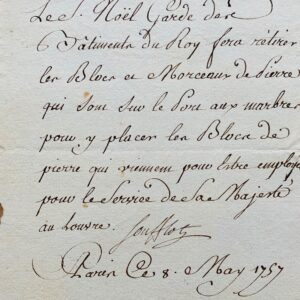 Le S. Noël Garde des
Bâtiments Du Roy fera rétirer
les Blocs et Morceaux de Pierre
qui sont sur le Port aux marbre
pour y placer les Blocs de
pierre qui viennent pour Estre employe
pour le Service de Sa Majesté
au Louvre. Soufflot
Paris Ce 8. May 1757